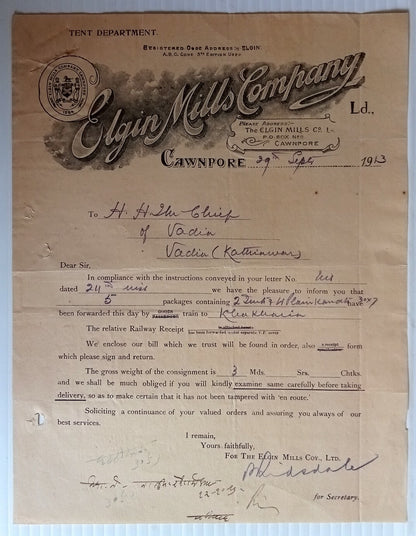 TENT DEPARTMENT.
REGISTERED CODE ADDRESS :- ELGIN.
A.B.C. CODE 5TH EDITION USED
Elgin Mills Company Ld.,
PLEASE ADDRESS:-
THE ELGIN MILLS CO. L
P.O. BOX
CAWNPORE
CAWNPORE 29th Sept 1913
To H. H. The Chief
of Vadia
Vadia (Kathiawar)
Dear Sir.
In compliance with the instructions conveyed in your letter No.
dated 24th we have the pleasure to inform you that
5 packages containing 2 Tents & 4 have
been forwarded this day by train to
The relative Railway Receipt
We enclose our bill which we trust will be found in order, also
form which please sign and return.
The gross weight of the consignment is 3 Mds. Srs. Chtks.
and we shall be much obliged if you will kindly examine same carefully before taking
delivery, so as to make certain that it has not been tampered with 'en route.'
Soliciting a continuance of your valued orders and assuring you always of our
best services.
I remain,
Yours faithfully,
FOR THE ELGIN MILLS COY., LTD.
for Secretary.